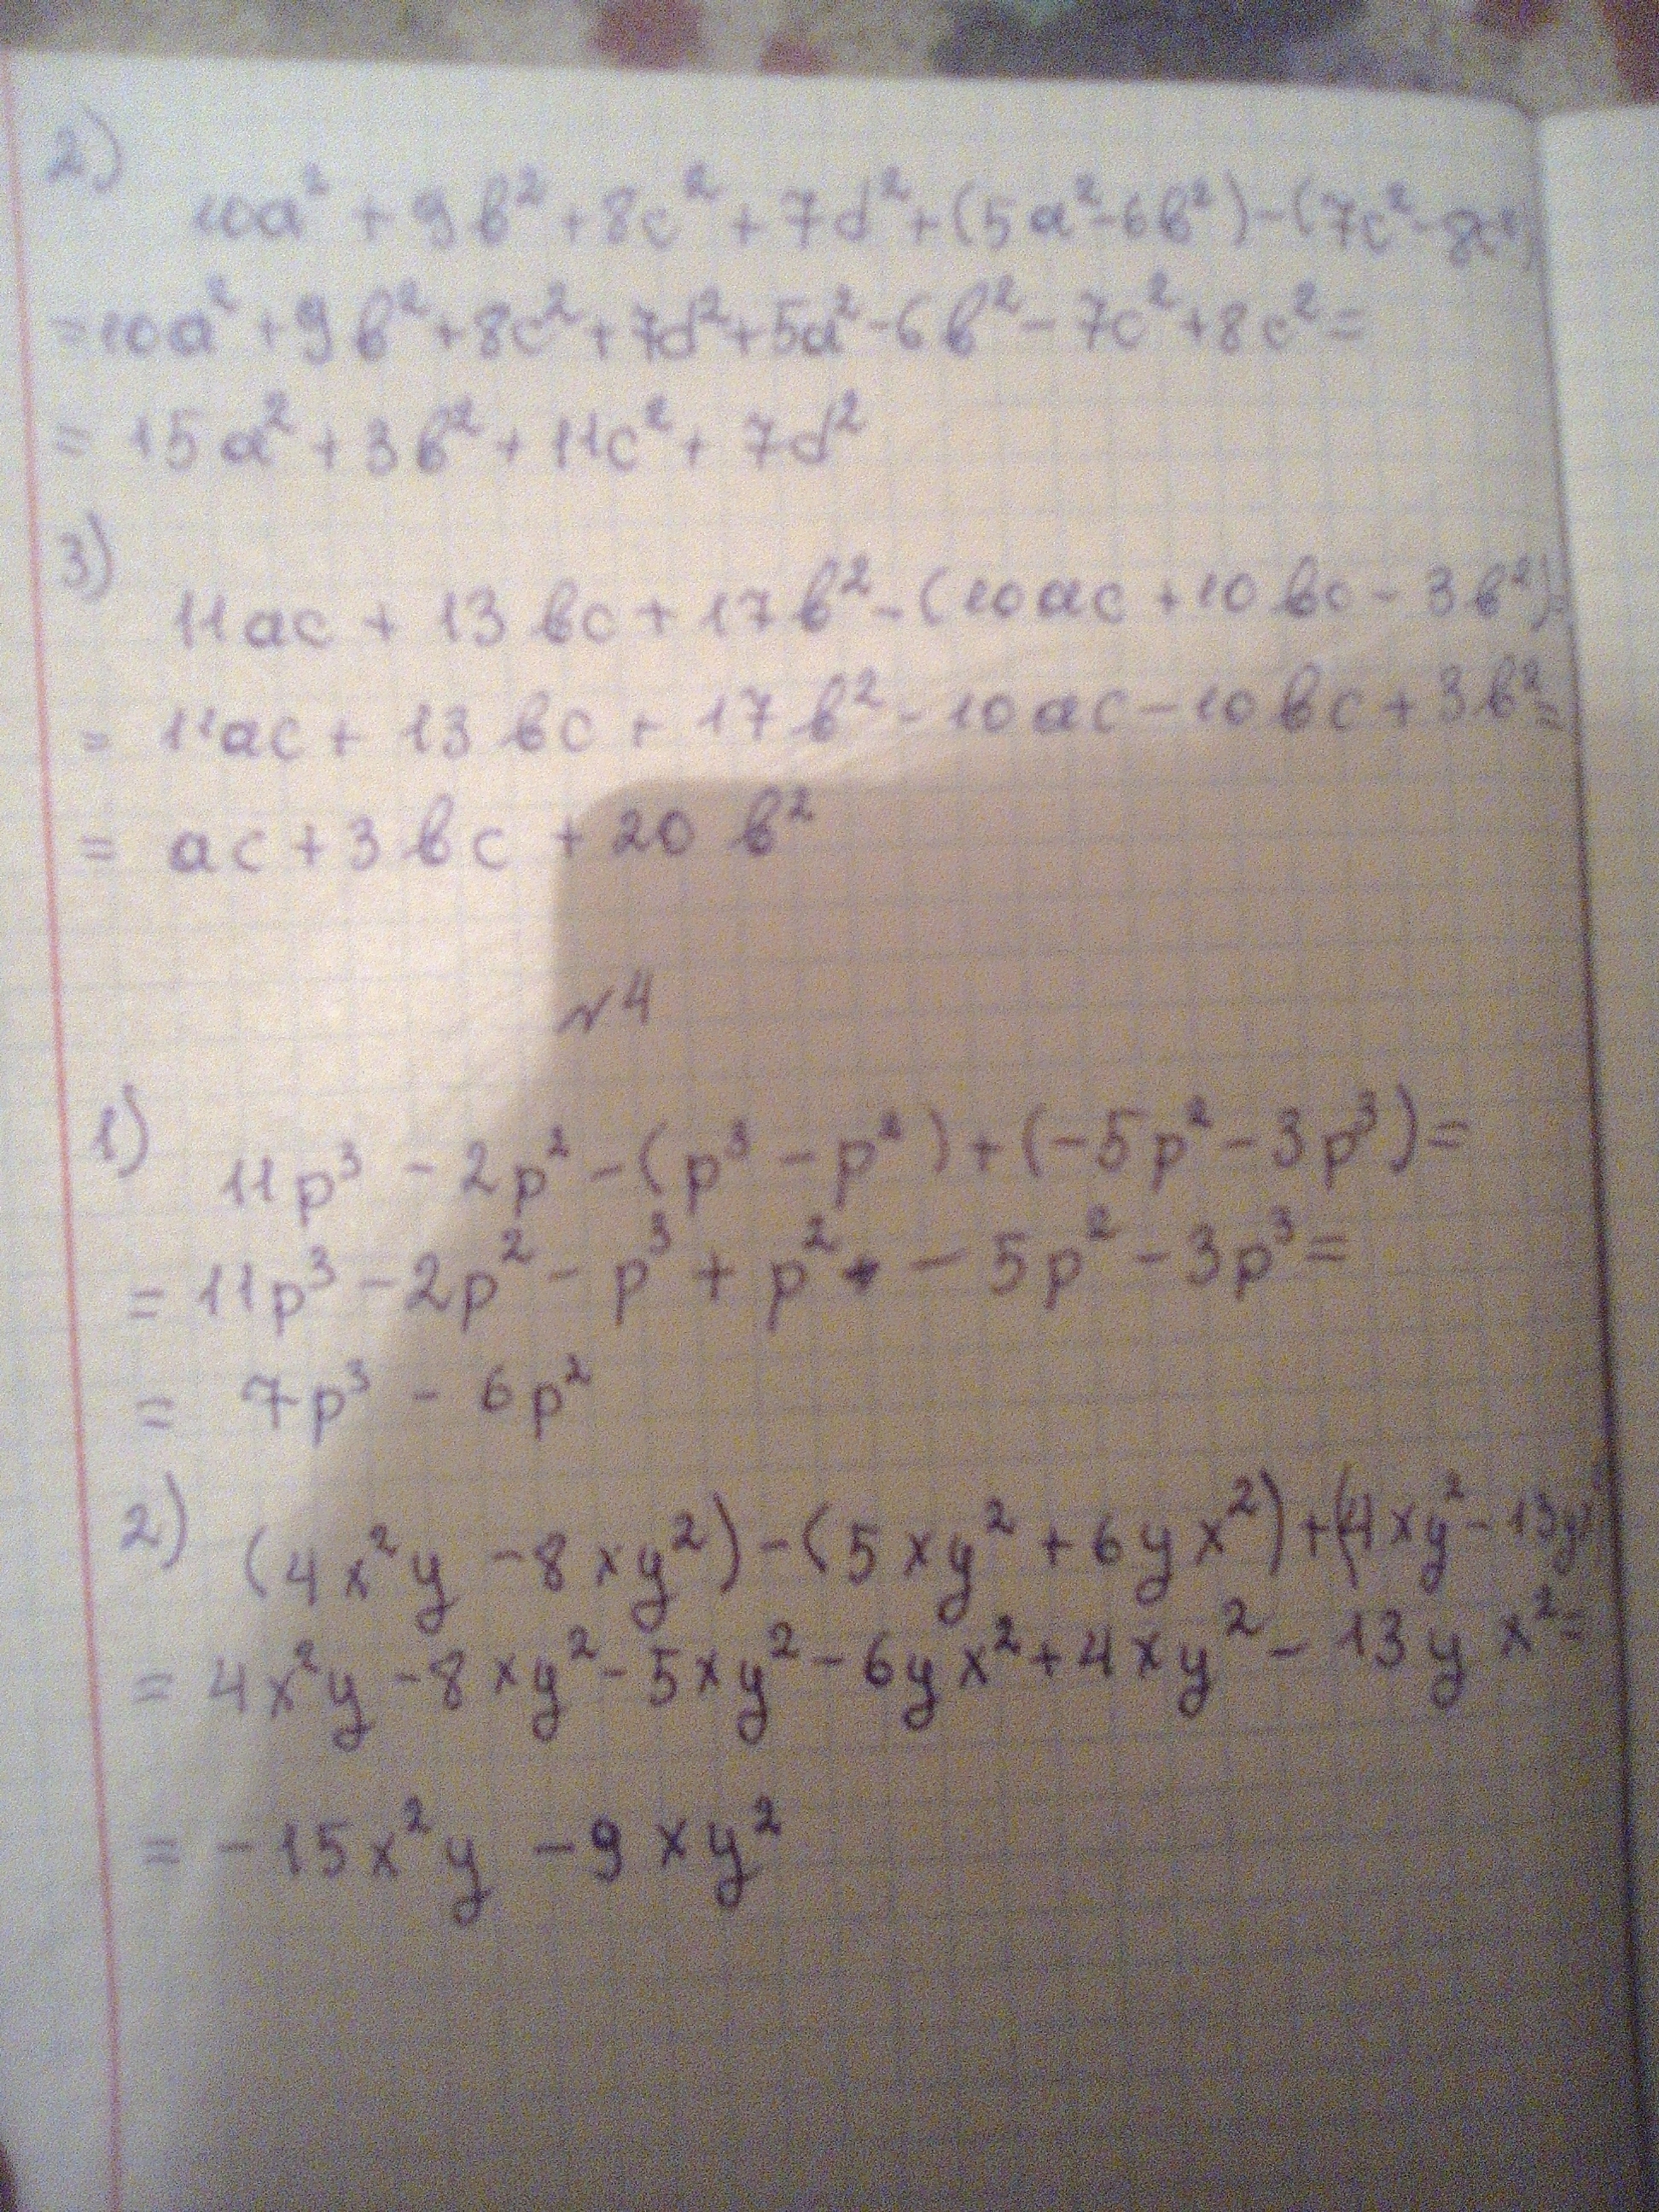 2)
10a² + 9b² + 8c² + 7d² + (5a² - 6b²) - (7c² - 8c²)
= 10a² + 9b² + 8c² + 7d² + 5a² - 6b² - 7c² + 8c² =
= 15a² + 3b² + 11c² + 7d²
3)
11ac + 13bc + 17b² - (10ac + 10bc - 3b²) =
= 11ac + 13bc + 17b² - 10ac - 10bc + 3b² =
= ac + 3bc + 20b²
№4
1)
11p³ - 2p² - (p³ - p²) + (-5p² - 3p³) =
= 11p³ - 2p² - p³ + p² - 5p² - 3p³ =
= 7p³ - 6p²
2)
(4x²y - 8xy²) - (5xy² + 6yx²) + (4xy² - 13y
= 4x²y - 8xy² - 5xy² - 6yx² + 4xy² - 13yx² =
= -15x²y - 9xy²